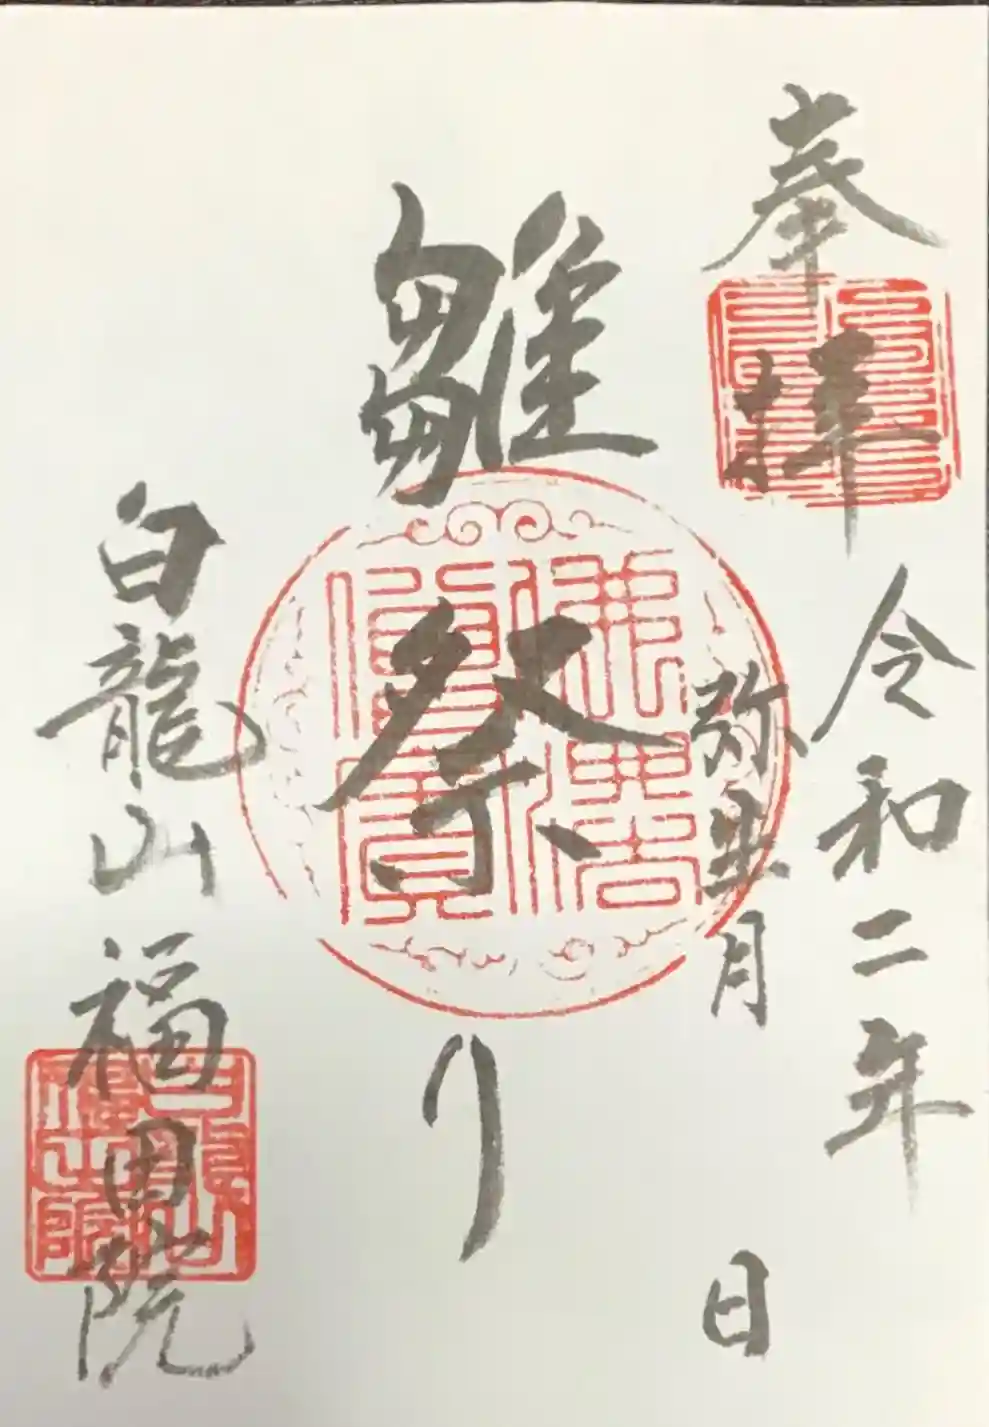 奉拝
令和二年
弥生月 日
雛祭り
佛法僧寶
白龍山福田院